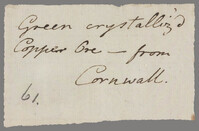 Green crystalliz'd
Copper Ore — from
Cornwall.
61.